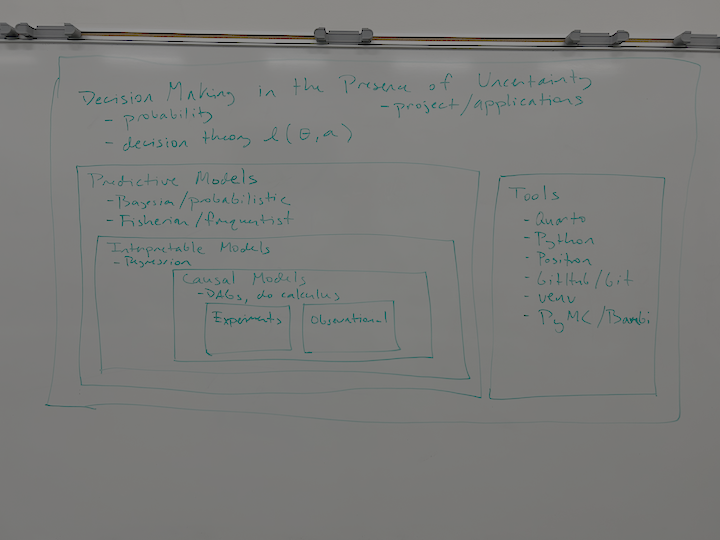 Decision Making in the Presence of Uncertainty
- probability
- project/applications
- decision theory l(θ,a)
Predictive Models
- Bayesian/probabilistic
- Fisherian/frequentist
Interpretable Models
- Regression
Causal Models
- DAGs, do calculus
Experiments
Observational
Tools
- Quarto
- Python
- Positron
- GitHub/Git
- venv
- PyMC/Bambi